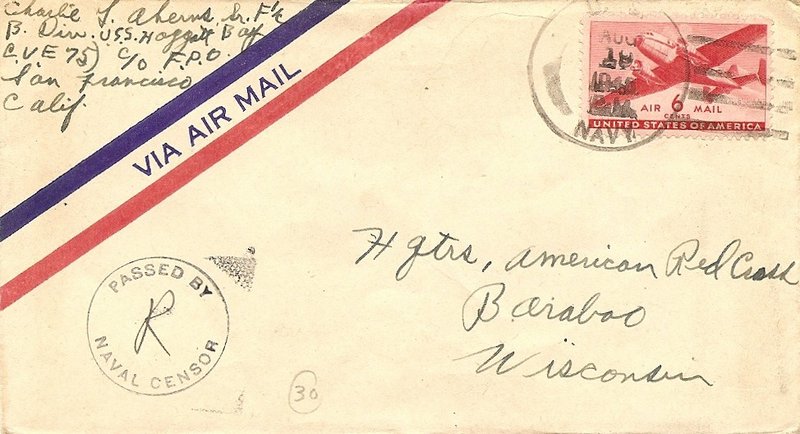 Charlie L. Aherns, Sr. F1/c
B. Div. U.S.S. Hoggatt Bay
C.V.E 75) c/o F.P.O.
San Francisco
Calif
VIA AIR MAIL
AUG
18
NAVY
AIR 6 MAIL
CENTS
UNITED STATES OF AMERICA
PASSED BY
R
NAVAL CENSOR
Hqtrs, American Red Cross
Baraboo
Wisconsin
30